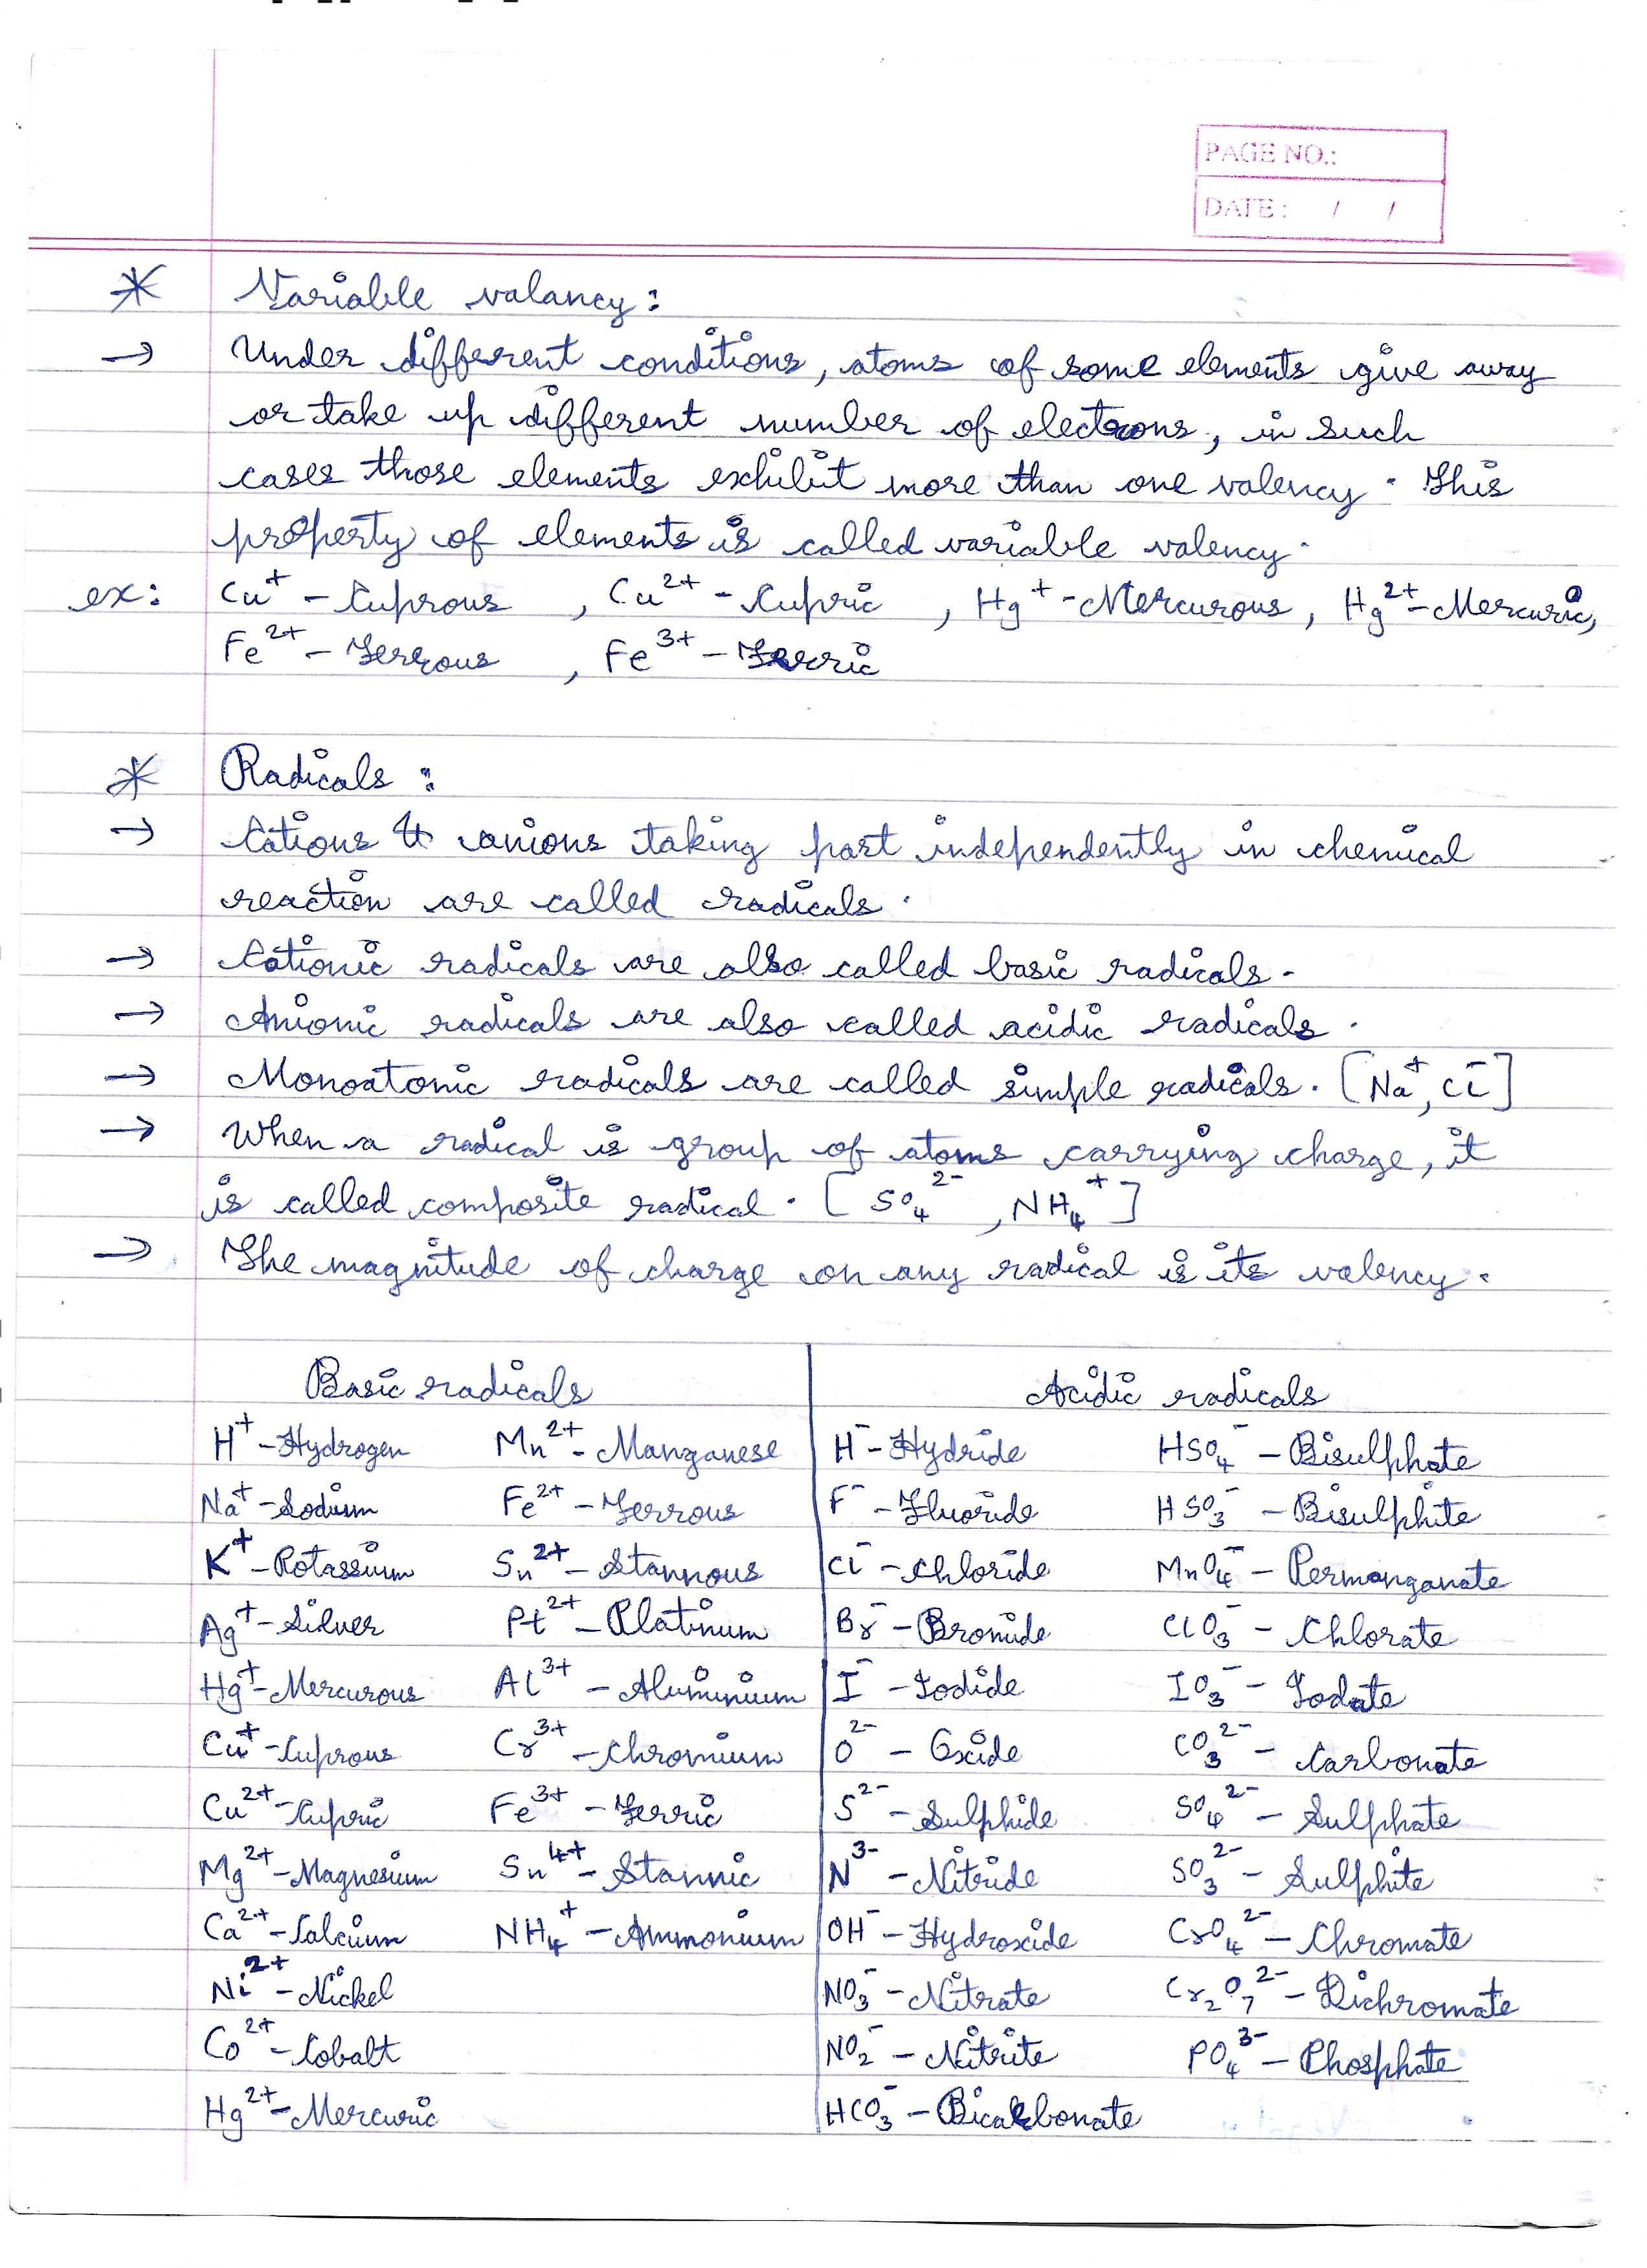 PAGE NO.:
DATE: / /
* Variable valancy:
→ Under different conditions, atoms of some elements give away
or take up different number of electrons, in such
cases those elements exhibit more than one valency. This
property of elements is called variable valency.
ex: Cu⁺ - Cuprous , Cu²⁺ - Cupric , Hg⁺ - Mercurous, Hg²⁺ - Mercuric,
Fe²⁺ - Ferrous , Fe³⁺ - Ferric
* Radicals:
→ Cations & anions taking part independently in chemical
reaction are called radicals.
→ Cationic radicals are also called basic radicals.
→ Anionic radicals are also called acidic radicals.
→ Monoatomic radicals are called simple radicals. [Na⁺, Cl⁻]
→ When a radical is group of atoms carrying charge, it
is called composite radical. [SO₄²⁻, NH₄⁺]
→ The magnitude of charge on any radical is its valency.
Basic radicals Acidic radicals
H⁺ - Hydrogen Mn²⁺ - Manganese H⁻ - Hydride HSO₄⁻ - Bisulphate
Na⁺ - Sodium Fe²⁺ - Ferrous F⁻ - Fluoride HSO₃⁻ - Bisulphite
K⁺ - Potassium Sn²⁺ - Stannous Cl⁻ - Chloride MnO₄⁻ - Permanganate
Ag⁺ - Silver Pt²⁺ - Platinum Br⁻ - Bromide ClO₃⁻ - Chlorate
Hg⁺ - Mercurous Al³⁺ - Aluminium I⁻ - Iodide IO₃⁻ - Iodate
Cu⁺ - Cuprous Cr³⁺ - Chromium O²⁻ - Oxide CO₃²⁻ - Carbonate
Cu²⁺ - Cupric Fe³⁺ - Ferric S²⁻ - Sulphide SO₄²⁻ - Sulphate
Mg²⁺ - Magnesium Sn⁴⁺ - Stannic N³⁻ - Nitride SO₃²⁻ - Sulphite
Ca²⁺ - Calcium NH₄⁺ - Ammonium OH⁻ - Hydroxide CrO₄²⁻ - Chromate
Ni²⁺ - Nickel NO₃⁻ - Nitrate Cr₂O₇²⁻ - Dichromate
Co²⁺ - Cobalt NO₂⁻ - Nitrite PO₄³⁻ - Phosphate
Hg²⁺ - Mercuric HCO₃⁻ - Bicarbonate